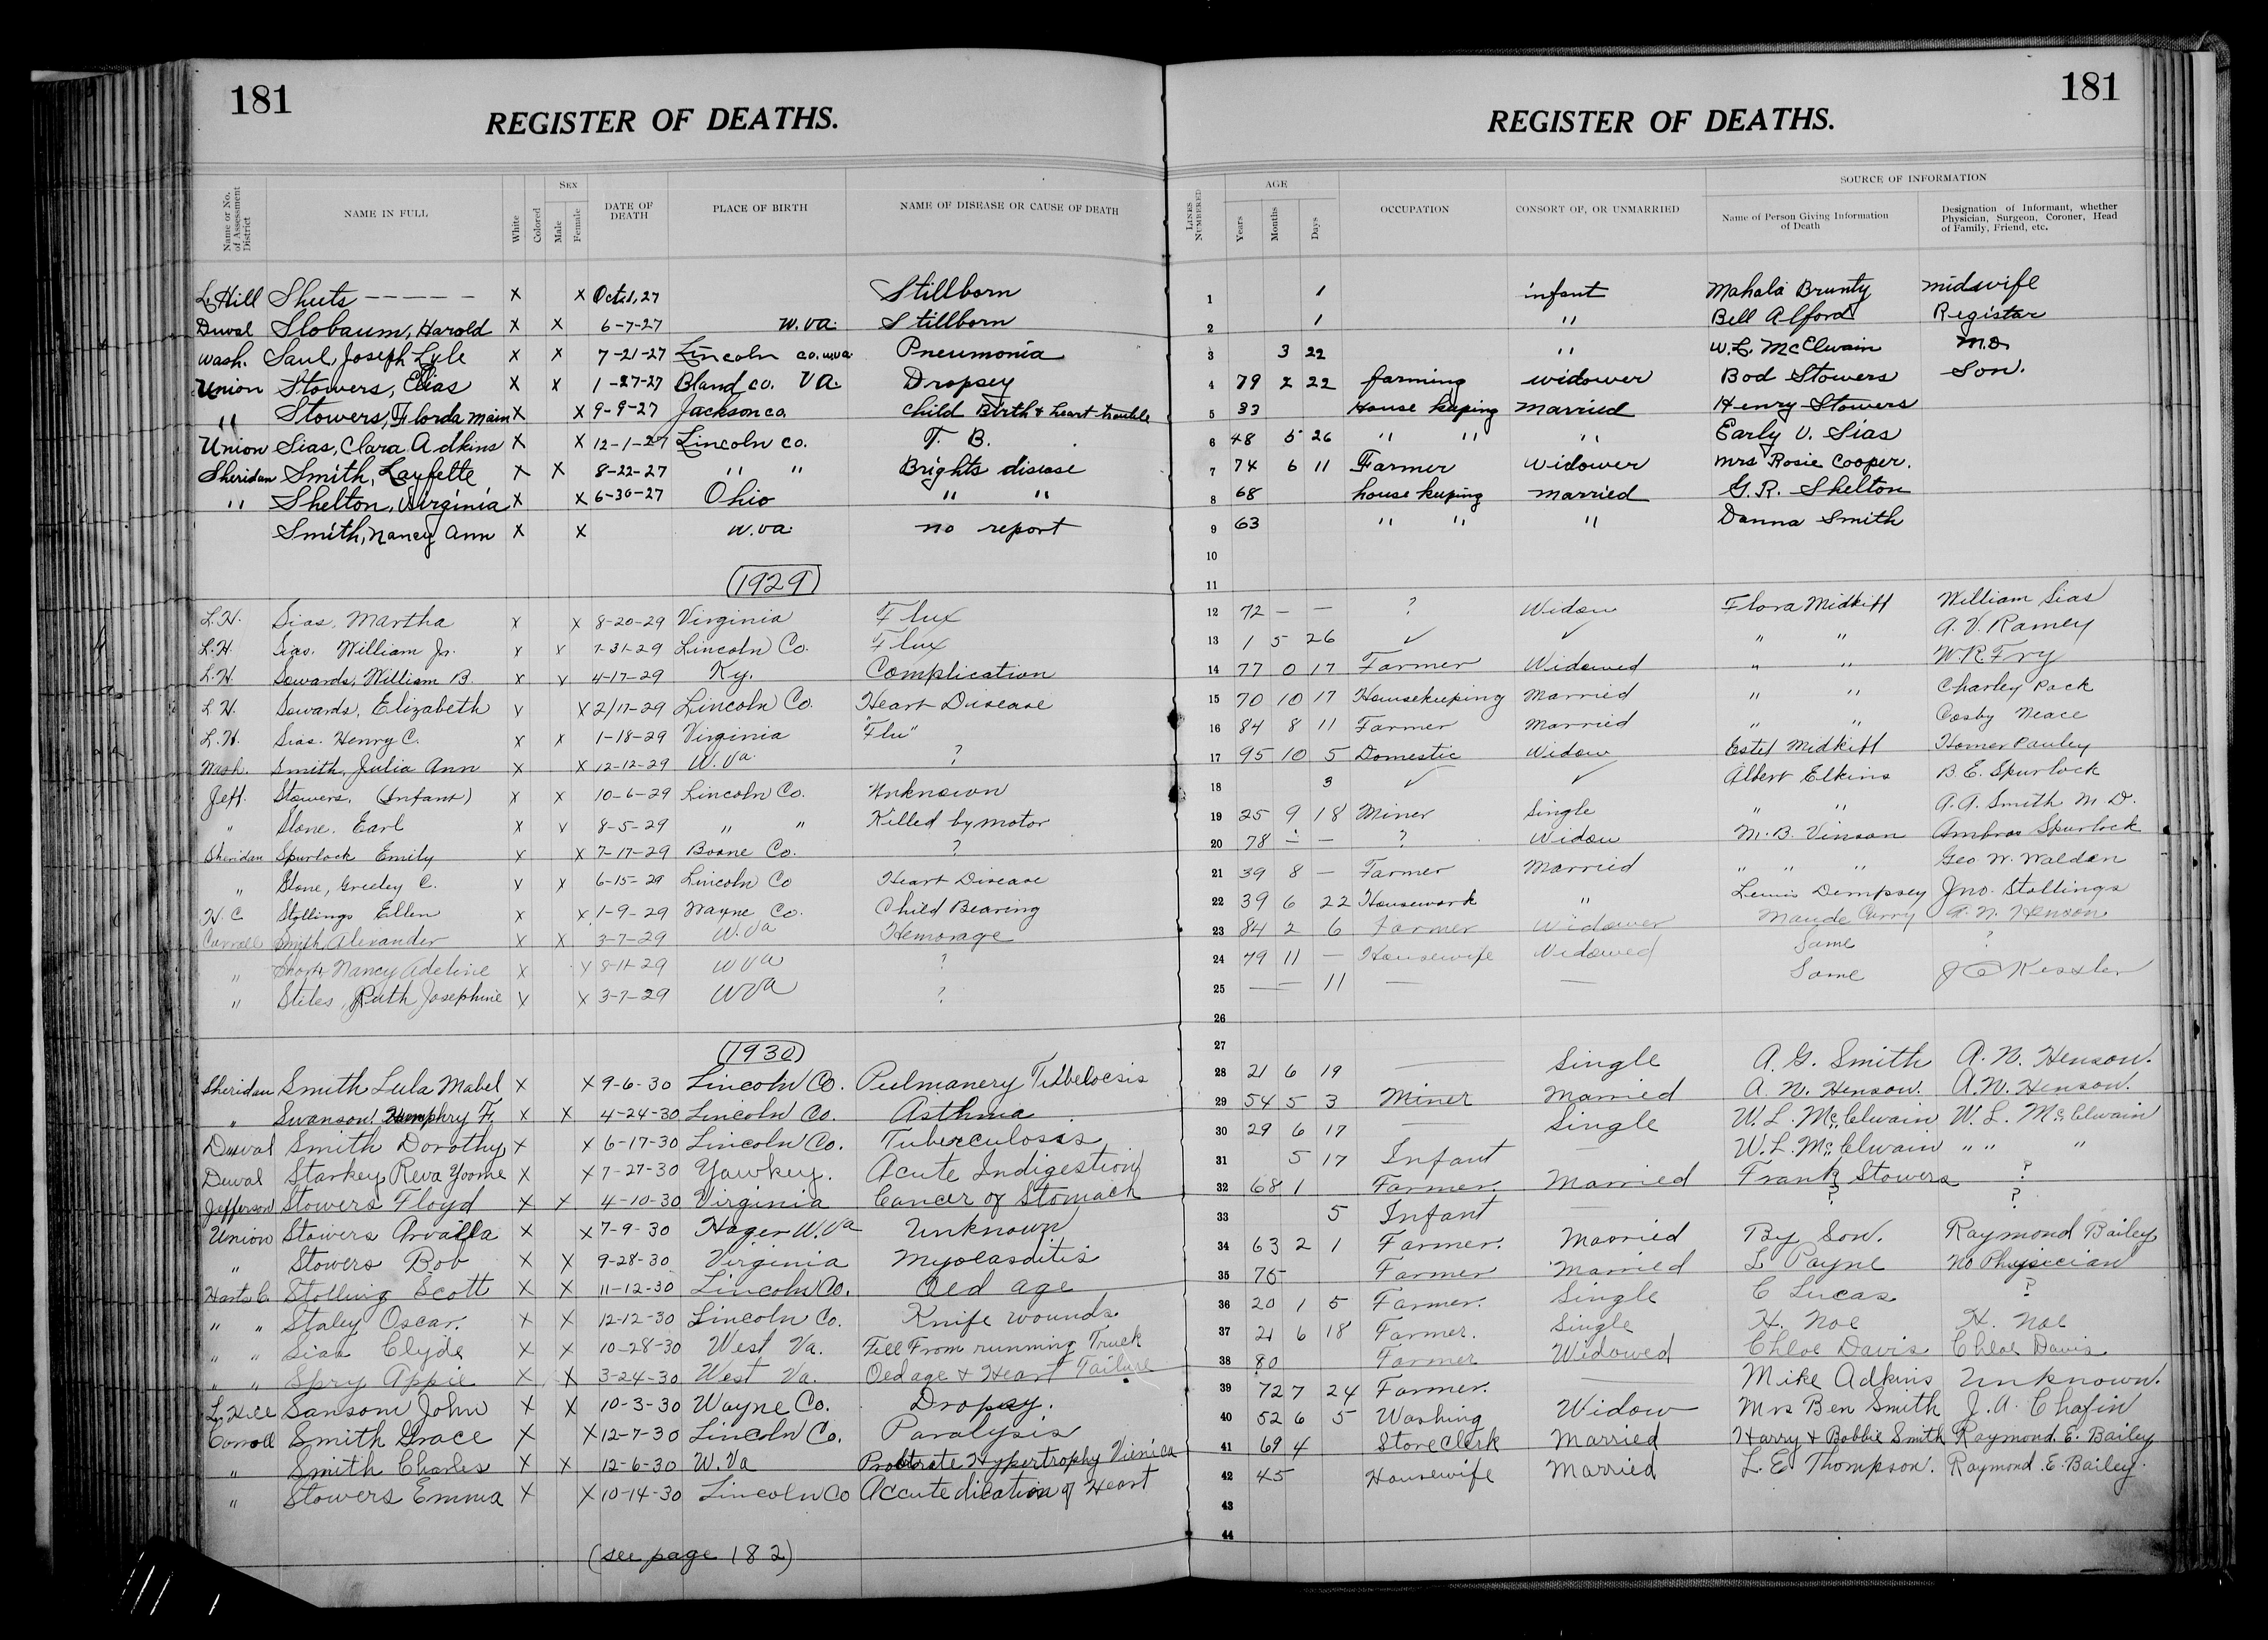 181
REGISTER OF DEATHS.
Name or No. of Assessment District | NAME IN FULL | White | Colored | SEX Male | Female | DATE OF DEATH | PLACE OF BIRTH | NAME OF DISEASE OR CAUSE OF DEATH
L. Hill Shuts ----- X X Oct 1, 27 Stillborn
Duval Slobaum, Harold X X 6-7-27 W.Va. Stillborn
Wash. Saul, Joseph Lyle X X 7-21-27 Lincoln co. W.Va. Pneumonia
Union Stowers, Elias X X 1-27-27 Bland co. Va. Dropsey
" Stowers, Florda Main X X 9-9-27 Jackson co. Child Birth & heart trouble
Union Sias, Clara Adkins X X 12-1-27 Lincoln co. T. B.
Sheridan Smith, Layfette X X 8-22-27 " " Brights disease
" Shelton, Virginia X X 6-30-27 Ohio " "
Smith, Nancy Ann X X W.Va. no report
(1929)
L.H. Sias, Martha X X 8-20-29 Virginia Flux
L.H. Sias. William Jr. X X 7-31-29 Lincoln Co. Flux
L.H. Sowards, William B. X X 4-17-29 Ky. Complication
L.H. Sowards, Elizabeth X X 2/17-29 Lincoln Co. Heart Disease
L.H. Sias. Henry C. X X 1-18-29 Virginia "Flu"
Wash. Smith, Julia Ann X X 12-12-29 W.Va. ?
Jeff. Stowers, (Infant) X X 10-6-29 Lincoln Co. Unknown
" Stone. Earl X X 8-5-29 " " Killed by motor
Sheridan Spurlock Emily X X 7-17-29 Boone Co. ?
" Stone, Greeley C. X X 6-15-29 Lincoln Co Heart Disease
H.C. Stollings Ellen X X 1-9-29 Wayne Co. Child Bearing
Carroll Smith, Alexander X X 3-7-29 W.Va Hemorage
" Nancy Adeline X X 8-11-29 W Va ?
" Stiles, Ruth Josephine X X 3-7-29 W Va ?
(1930)
Sheridan Smith Lula Mabel X X 9-6-30 Lincoln Co. Pulmanery Tubelocsis
" Swanson. Humphry F. X X 4-24-30 Lincoln Co. Asthma
Duval Smith Dorothy X X 6-17-30 Lincoln Co. Tuberculosis
Duval Starkey Reva Yoome X X 7-27-30 Yawkey. Acute Indigestion
Jefferson Stowers Floyd X X 4-10-30 Virginia Cancer of Stomach
Union Stowers Arvalla X X 7-9-30 Hager W.Va Unknown
" Stowers Bob X X 9-28-30 Virginia Myocasditis
Harts C. Stolling Scott X X 11-12-30 Lincoln Co. Old age
" " Staley Oscar. X X 12-12-30 Lincoln Co. Knife wounds.
" " Sias Clyde X X 10-28-30 West Va. Fell From running Truck
" " Spry Appie X X 3-24-30 West Va. Old age & Heart Failure
L. Hill Sansom John X X 10-3-30 Wayne Co. Dropsy.
Carroll Smith Grace X X 12-7-30 Lincoln Co. Paralysis
" Smith Charles X X 12-6-30 W.Va Prostrate Hypertrophy
" Stowers Emma X X 10-14-30 Lincoln Co Accute dilation of Heart
(see page 182)
181
REGISTER OF DEATHS.
LINES NUMBERED | AGE Years | Months | Days | OCCUPATION | CONSORT OF, OR UNMARRIED | SOURCE OF INFORMATION Name of Person Giving Information of Death | Designation of Informant, whether Physician, Surgeon, Coroner, Head of Family, Friend, etc.
1 1 infant Mahala Brunty midwife
2 1 " Bell Alford Registar
3 3 22 " W.L. McClwain M.D.
4 79 2 22 farming widower Bod Stowers Son.
5 33 House keping married Henry Stowers
6 48 5 26 " " " Early V. Sias
7 74 6 11 Farmer widower Mrs Rosie Cooper.
8 68 house keping married G.R. Shelton
9 63 " " " Danna Smith
10
11
12 72 — — ? Widow Flora Midkiff William Sias
13 1 5 26 ✓ ✓ " " A. V. Ramey
14 77 0 17 Farmer Widowed " " W.R. Fry
15 70 10 17 Housekeeping Married " " Charley Pack
16 84 8 11 Farmer Married " " Cosby Neace
17 95 10 5 Domestic Widow Estel Midkiff Homer Pauley
18 3 ✓ ✓ Albert Elkins B.E. Spurlock
19 25 9 18 Miner Single " " A.A. Smith M.D.
20 78 — — ? Widow M.B. Vinson Ambros Spurlock
21 39 8 — Farmer Married " " " Geo W. Walden
22 39 6 22 Housework " Lewis Dempsey Jno. Stollings
23 84 2 6 Farmer Widower Maude Curry A.N. Henson
24 79 11 — Housewife Widowed Same ?
25 — — 11 — — Same J C Kessler
26
27
28 21 6 19 — Single A. G. Smith A. N. Henson.
29 54 5 3 Miner Married A. N. Henson. A. N. Henson.
30 29 6 17 — Single W. L. McClwain W. L. McClwain
31 5 17 Infant — W. L. McClwain " " "
32 68 1 Farmer. Married Frank Stowers ?
33 5 Infant — ? ?
34 63 2 1 Farmer. Married By Son. Raymond Bailey
35 75 Farmer Married L Payne No Physician
36 20 1 5 Farmer. Single C Lucas ?
37 21 6 18 Farmer. Single H. Noe H. Noe
38 80 Farmer Widowed Chloe Davis Chloe Davis
39 72 7 24 Farmer. — Mike Adkins Unknown.
40 52 6 5 Washing Widow Mrs Ben Smith J. A. Chafin
41 69 4 Store Clerk Married Harry & Bobbie Smith Raymond E. Bailey
42 45 Housewife Married L. E Thompson. Raymond. E. Bailey.
43
44